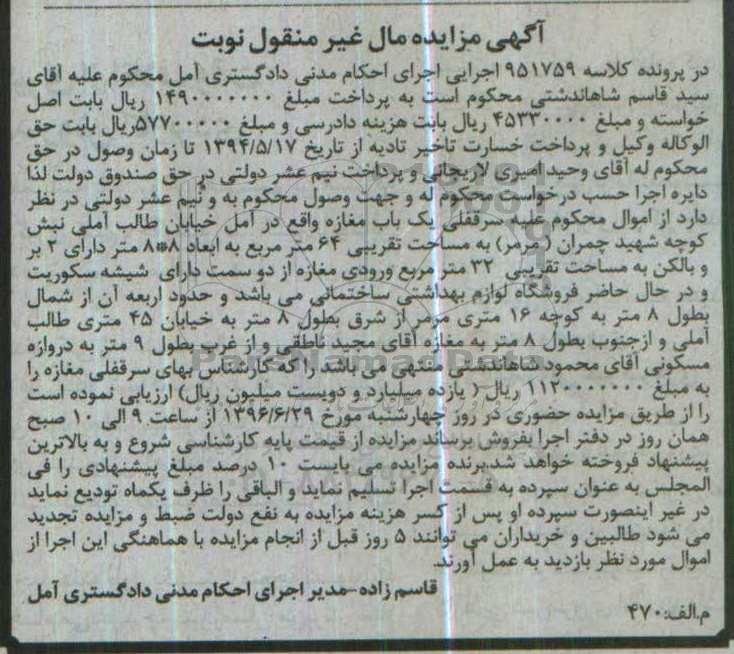 آگهی مزایده مال غیر منقول نوبت
در پرونده کلاسه ۹۵۱۷۵۹ اجرایی اجرای احکام مدنی دادگستری آمل محکوم علیه آقای
سید قاسم شاهاندشتی محکوم است به پرداخت مبلغ ۱۴۹۰۰۰۰۰۰۰ ریال بابت اصل
خواسته و مبلغ ۴۵۳۳۰۰۰۰ ریال بابت هزینه دادرسی و مبلغ ۵۷۷۰۰۰۰۰ریال بابت حق
الوکاله وکیل و پرداخت خسارت تاخیر تادیه از تاریخ ۱۳۹۴/۵/۱۷ تا زمان وصول در حق
محکوم له آقای وحید امیری لاریجانی و پرداخت نیم عشر دولتی در حق صندوق دولت لذا
دایره اجرا حسب درخواست محکوم له و جهت وصول محکوم به و نیم عشر دولتی در نظر
دارد از اموال محکوم علیه سرقفلی یک باب مغازه واقع در آمل خیابان طالب آملی نبش
کوچه شهید چمران ( مرمر) به مساحت تقریبی ۶۴ متر مربع به ابعاد ۸*۸ متر دارای ۲ بر
و بالکن به مساحت تقریبی ۳۲ متر مربع ورودی مغازه از دو سمت دارای شیشه سکوریت
و در حال حاضر فروشگاه لوازم بهداشتی ساختمانی می باشد و حدود اربعه آن از شمال
بطول ۸ متر به کوچه ۱۶ متری مرمر از شرق بطول ۸ متر به خیابان ۴۵ متری طالب
آملی و ازجنوب بطول ۸ متر به مغازه آقای مجید ناطقی و از غرب بطول ۹ متر به دروازه
مسکونی آقای محمود شاهاندشتی منتهی می باشد را که کارشناس بهای سرقفلی مغازه را
به مبلغ ۱۱۲۰۰۰۰۰۰۰۰ ریال ( یازده میلیارد و دویست میلیون ریال) ارزیابی نموده است
را از طریق مزایده حضوری در روز چهارشنبه مورخ ۱۳۹۶/۶/۲۹ از ساعت ۹ الی ۱۰ صبح
همان روز در دفتر اجرا بفروش برساند مزایده از قیمت پایه کارشناسی شروع و به بالاترین
پیشنهاد فروخته خواهد شد.برنده مزایده می بایست ۱۰ درصد مبلغ پیشنهادی را فی
المجلس به عنوان سپرده به قسمت اجرا تسلیم نماید و الباقی را ظرف یکماه تودیع نماید
در غیر اینصورت سپرده او پس از کسر هزینه مزایده به نفع دولت ضبط و مزایده تجدید
می شود طالبین و خریداران می توانند ۵ روز قبل از انجام مزایده با هماهنگی این اجرا از
اموال مورد نظر بازدید به عمل آورند.
قاسم زاده-مدیر اجرای احکام مدنی دادگستری آمل
م.الف:۴۷۰
ParsNamadData